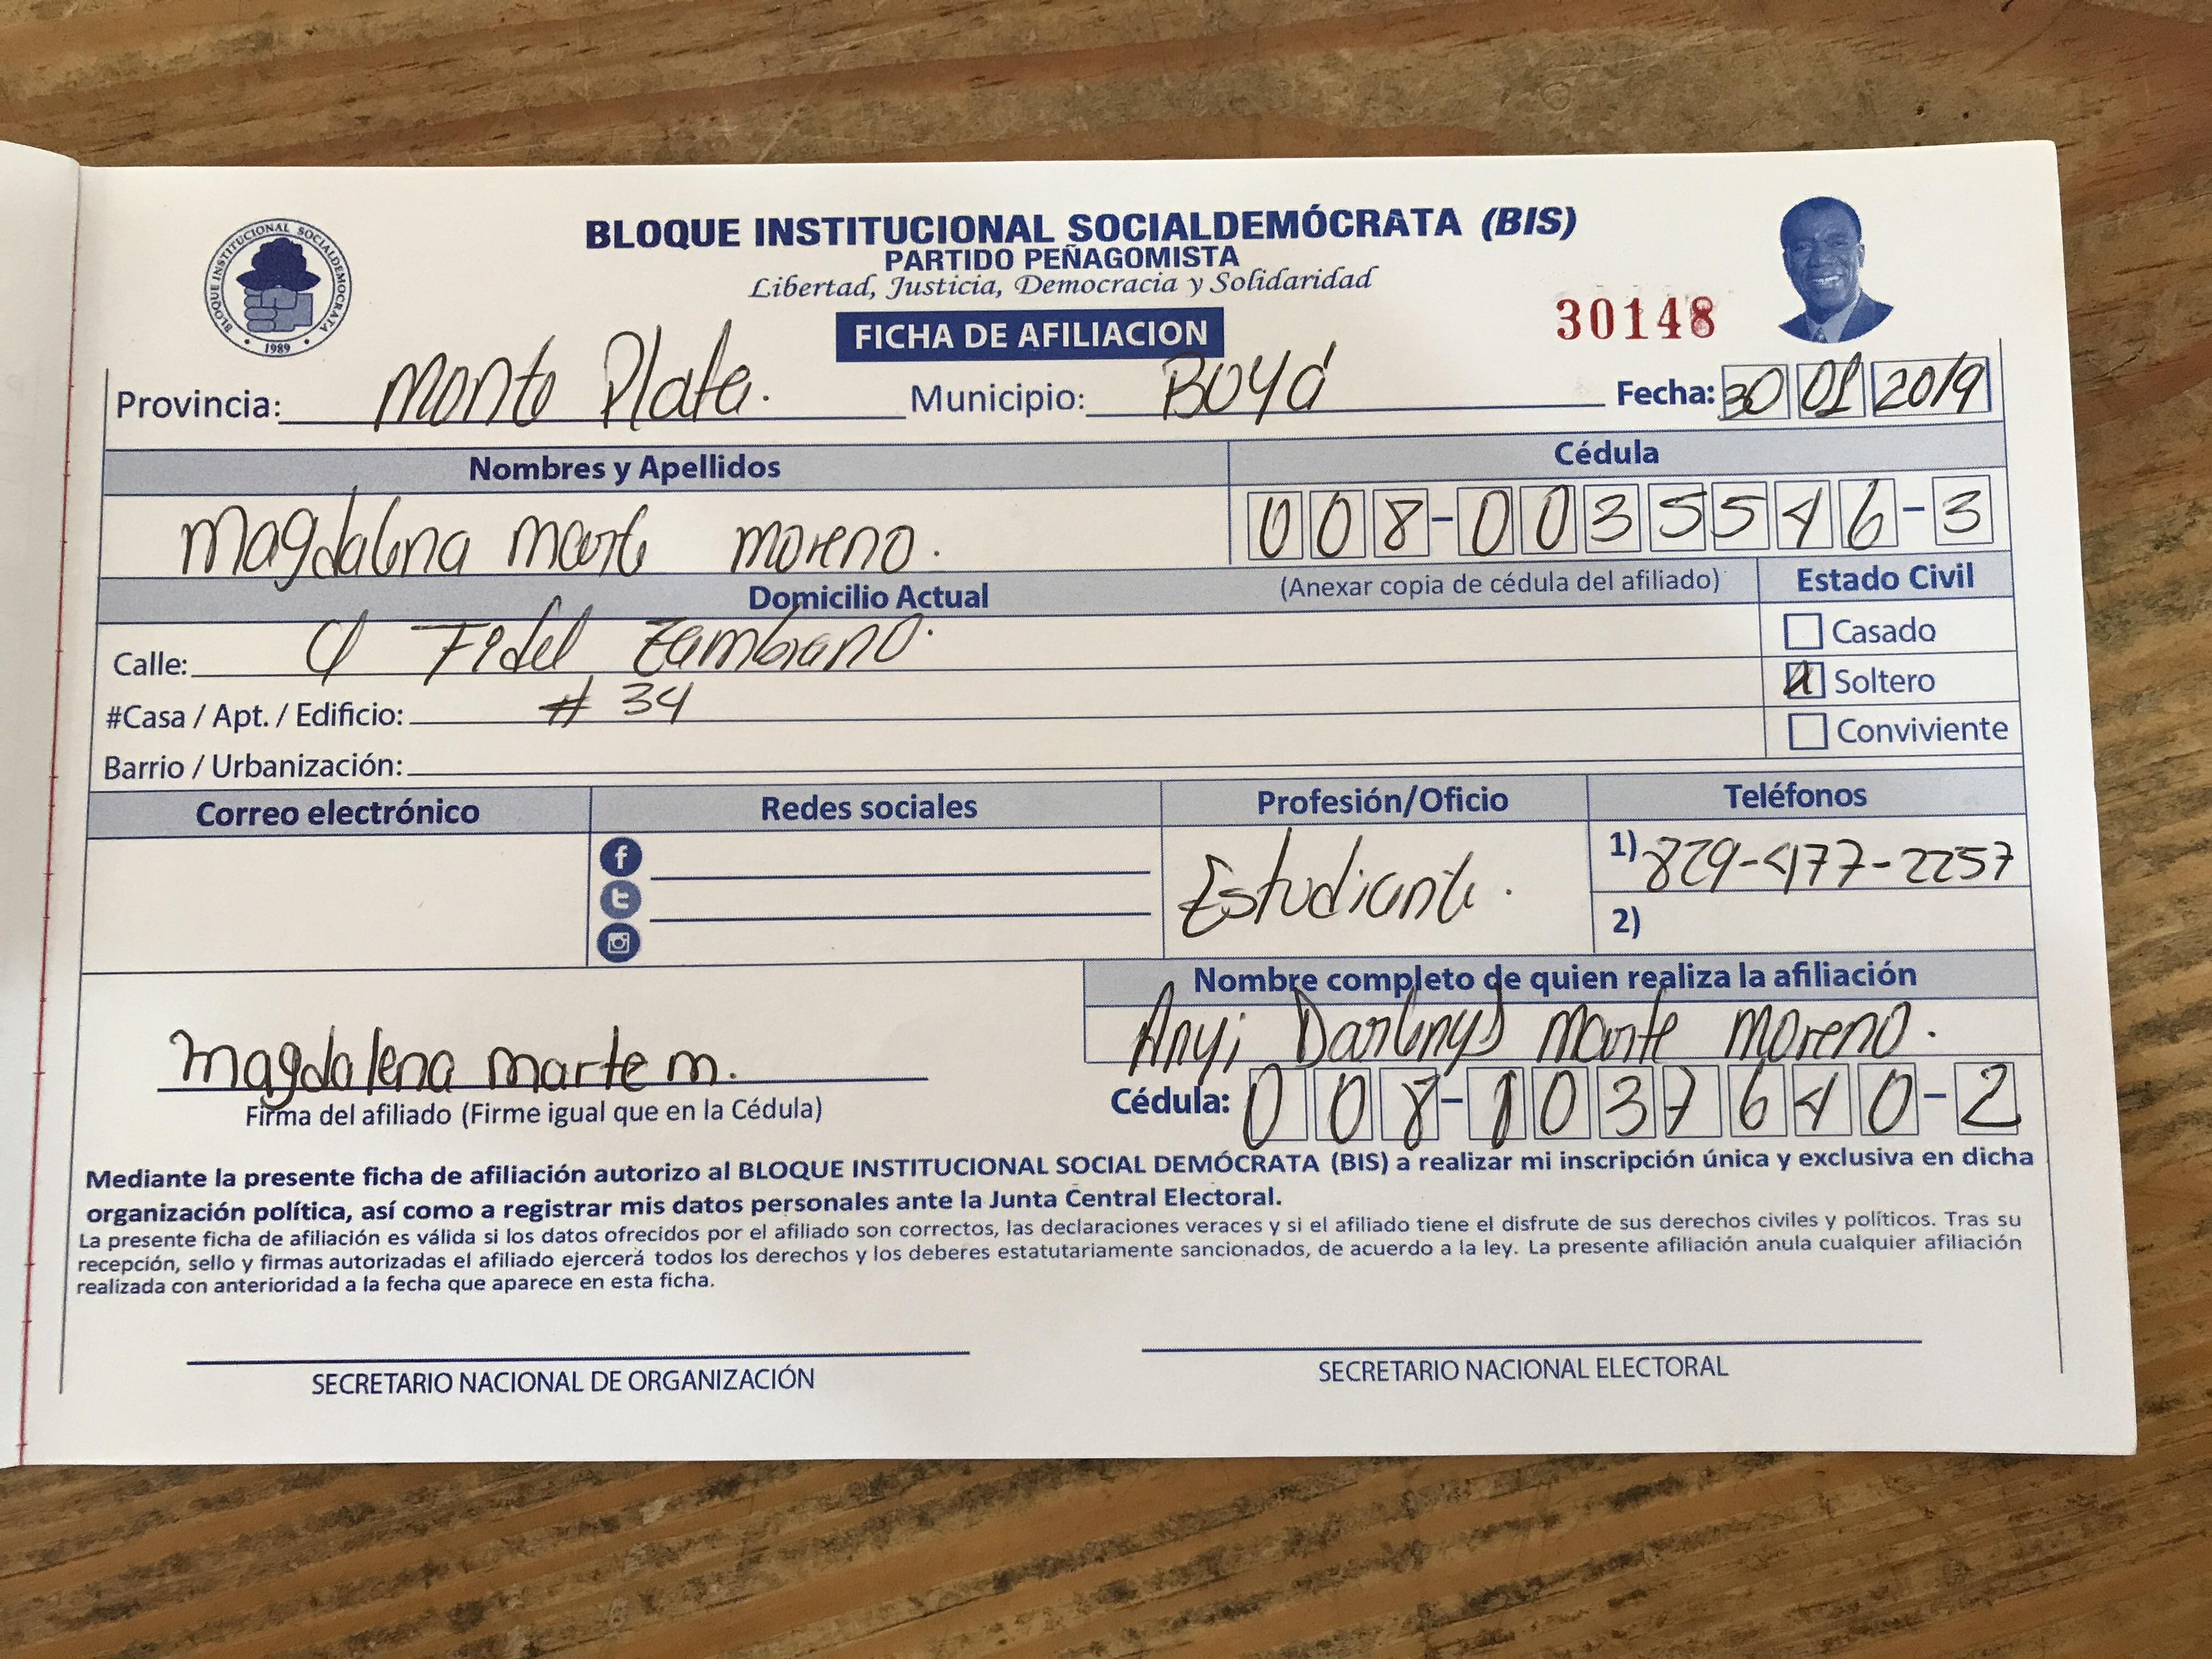 BLOQUE INSTITUCIONAL SOCIALDEMÓCRATA (BIS)
PARTIDO PEÑAGOMISTA
Libertad, Justicia, Democracia y Solidaridad
BLOQUE INSTITUCIONAL SOCIALDEMOCRATA
• 1989 •
FICHA DE AFILIACION
30148
Provincia: Monte Plata. Municipio: Boyá Fecha: 30 01 2019
Nombres y Apellidos Cédula
Magdalena Marte Moreno. 008-0035546-3
Domicilio Actual (Anexar copia de cédula del afiliado) Estado Civil
Calle: C/ Fidel Zambrano. Casado
#Casa / Apt. / Edificio: # 34 Soltero
Barrio / Urbanización: Conviviente
Correo electrónico Redes sociales Profesión/Oficio Teléfonos
Estudiante. 1) 829-477-2257
2)
Nombre completo de quien realiza la afiliación
Anyi Darlenys Marte Moreno.
magdalena marte m.
Firma del afiliado (Firme igual que en la Cédula) Cédula: 008-1037640-2
Mediante la presente ficha de afiliación autorizo al BLOQUE INSTITUCIONAL SOCIAL DEMÓCRATA (BIS) a realizar mi inscripción única y exclusiva en dicha
organización política, así como a registrar mis datos personales ante la Junta Central Electoral.
La presente ficha de afiliación es válida si los datos ofrecidos por el afiliado son correctos, las declaraciones veraces y si el afiliado tiene el disfrute de sus derechos civiles y políticos. Tras su
recepción, sello y firmas autorizadas el afiliado ejercerá todos los derechos y los deberes estatutariamente sancionados, de acuerdo a la ley. La presente afiliación anula cualquier afiliación
realizada con anterioridad a la fecha que aparece en esta ficha.
SECRETARIO NACIONAL DE ORGANIZACIÓN SECRETARIO NACIONAL ELECTORAL